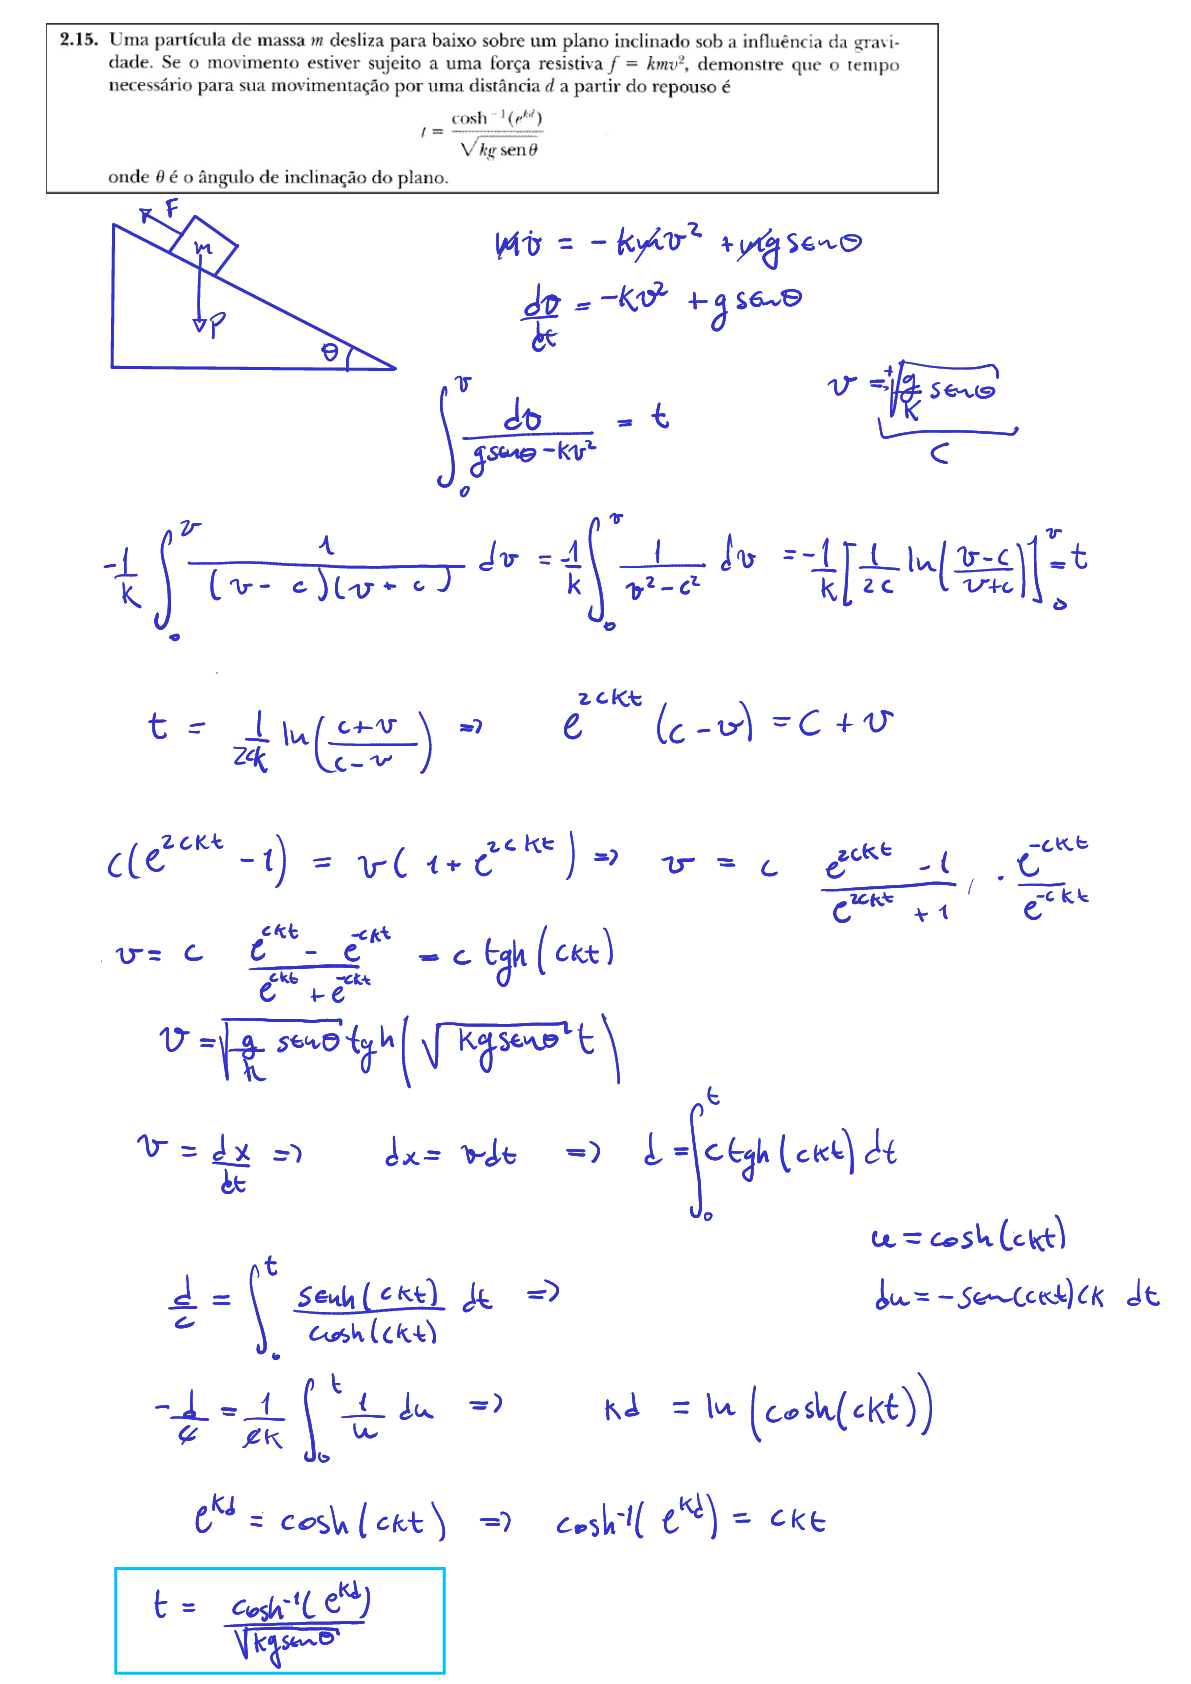 2.15. Uma partícula de massa m desliza para baixo sobre um plano inclinado sob a influência da gravi-
dade. Se o movimento estiver sujeito a uma força resistiva f = kmv², demonstre que o tempo
necessário para sua movimentação por uma distância d a partir do repouso é
t = cosh⁻¹(e^{kd}) / √(kg sen θ)
onde θ é o ângulo de inclinação do plano.
F
m
P
θ
m v̇ = -kmv² + mg senθ
dv/dt = -kv² + g senθ
∫₀^v dv/(g senθ - kv²) = t
v = ±√(g/k senθ)
c
-1/k ∫₀^v 1/((v - c)(v + c)) dv = -1/k ∫₀^v 1/(v² - c²) dv = -1/k [1/2c ln((v-c)/(v+c))]₀^v = t
t = 1/2ck ln((c+v)/(c-v)) => e^{2ckt} (c - v) = c + v
c(e^{2ckt} - 1) = v(1 + e^{2ckt}) => v = c (e^{2ckt} - 1)/(e^{2ckt} + 1) · e^{-ckt}/e^{-ckt}
v = c (e^{ckt} - e^{-ckt})/(e^{ckt} + e^{-ckt}) = c tgh(ckt)
v = √(g/k senθ) tgh(√(kg senθ) t)
v = dx/dt => dx = v dt => d = ∫₀^t c tgh(ckt) dt
u = cosh(ckt)
du = -sen(ckt)ck dt
d/c = ∫₀^t senh(ckt)/cosh(ckt) dt =>
-d/c = 1/ck ∫₀^t 1/u du => kd = ln(cosh(ckt))
e^{kd} = cosh(ckt) => cosh⁻¹(e^{kd}) = ckt
t = cosh⁻¹(e^{kd}) / √(kg senθ)